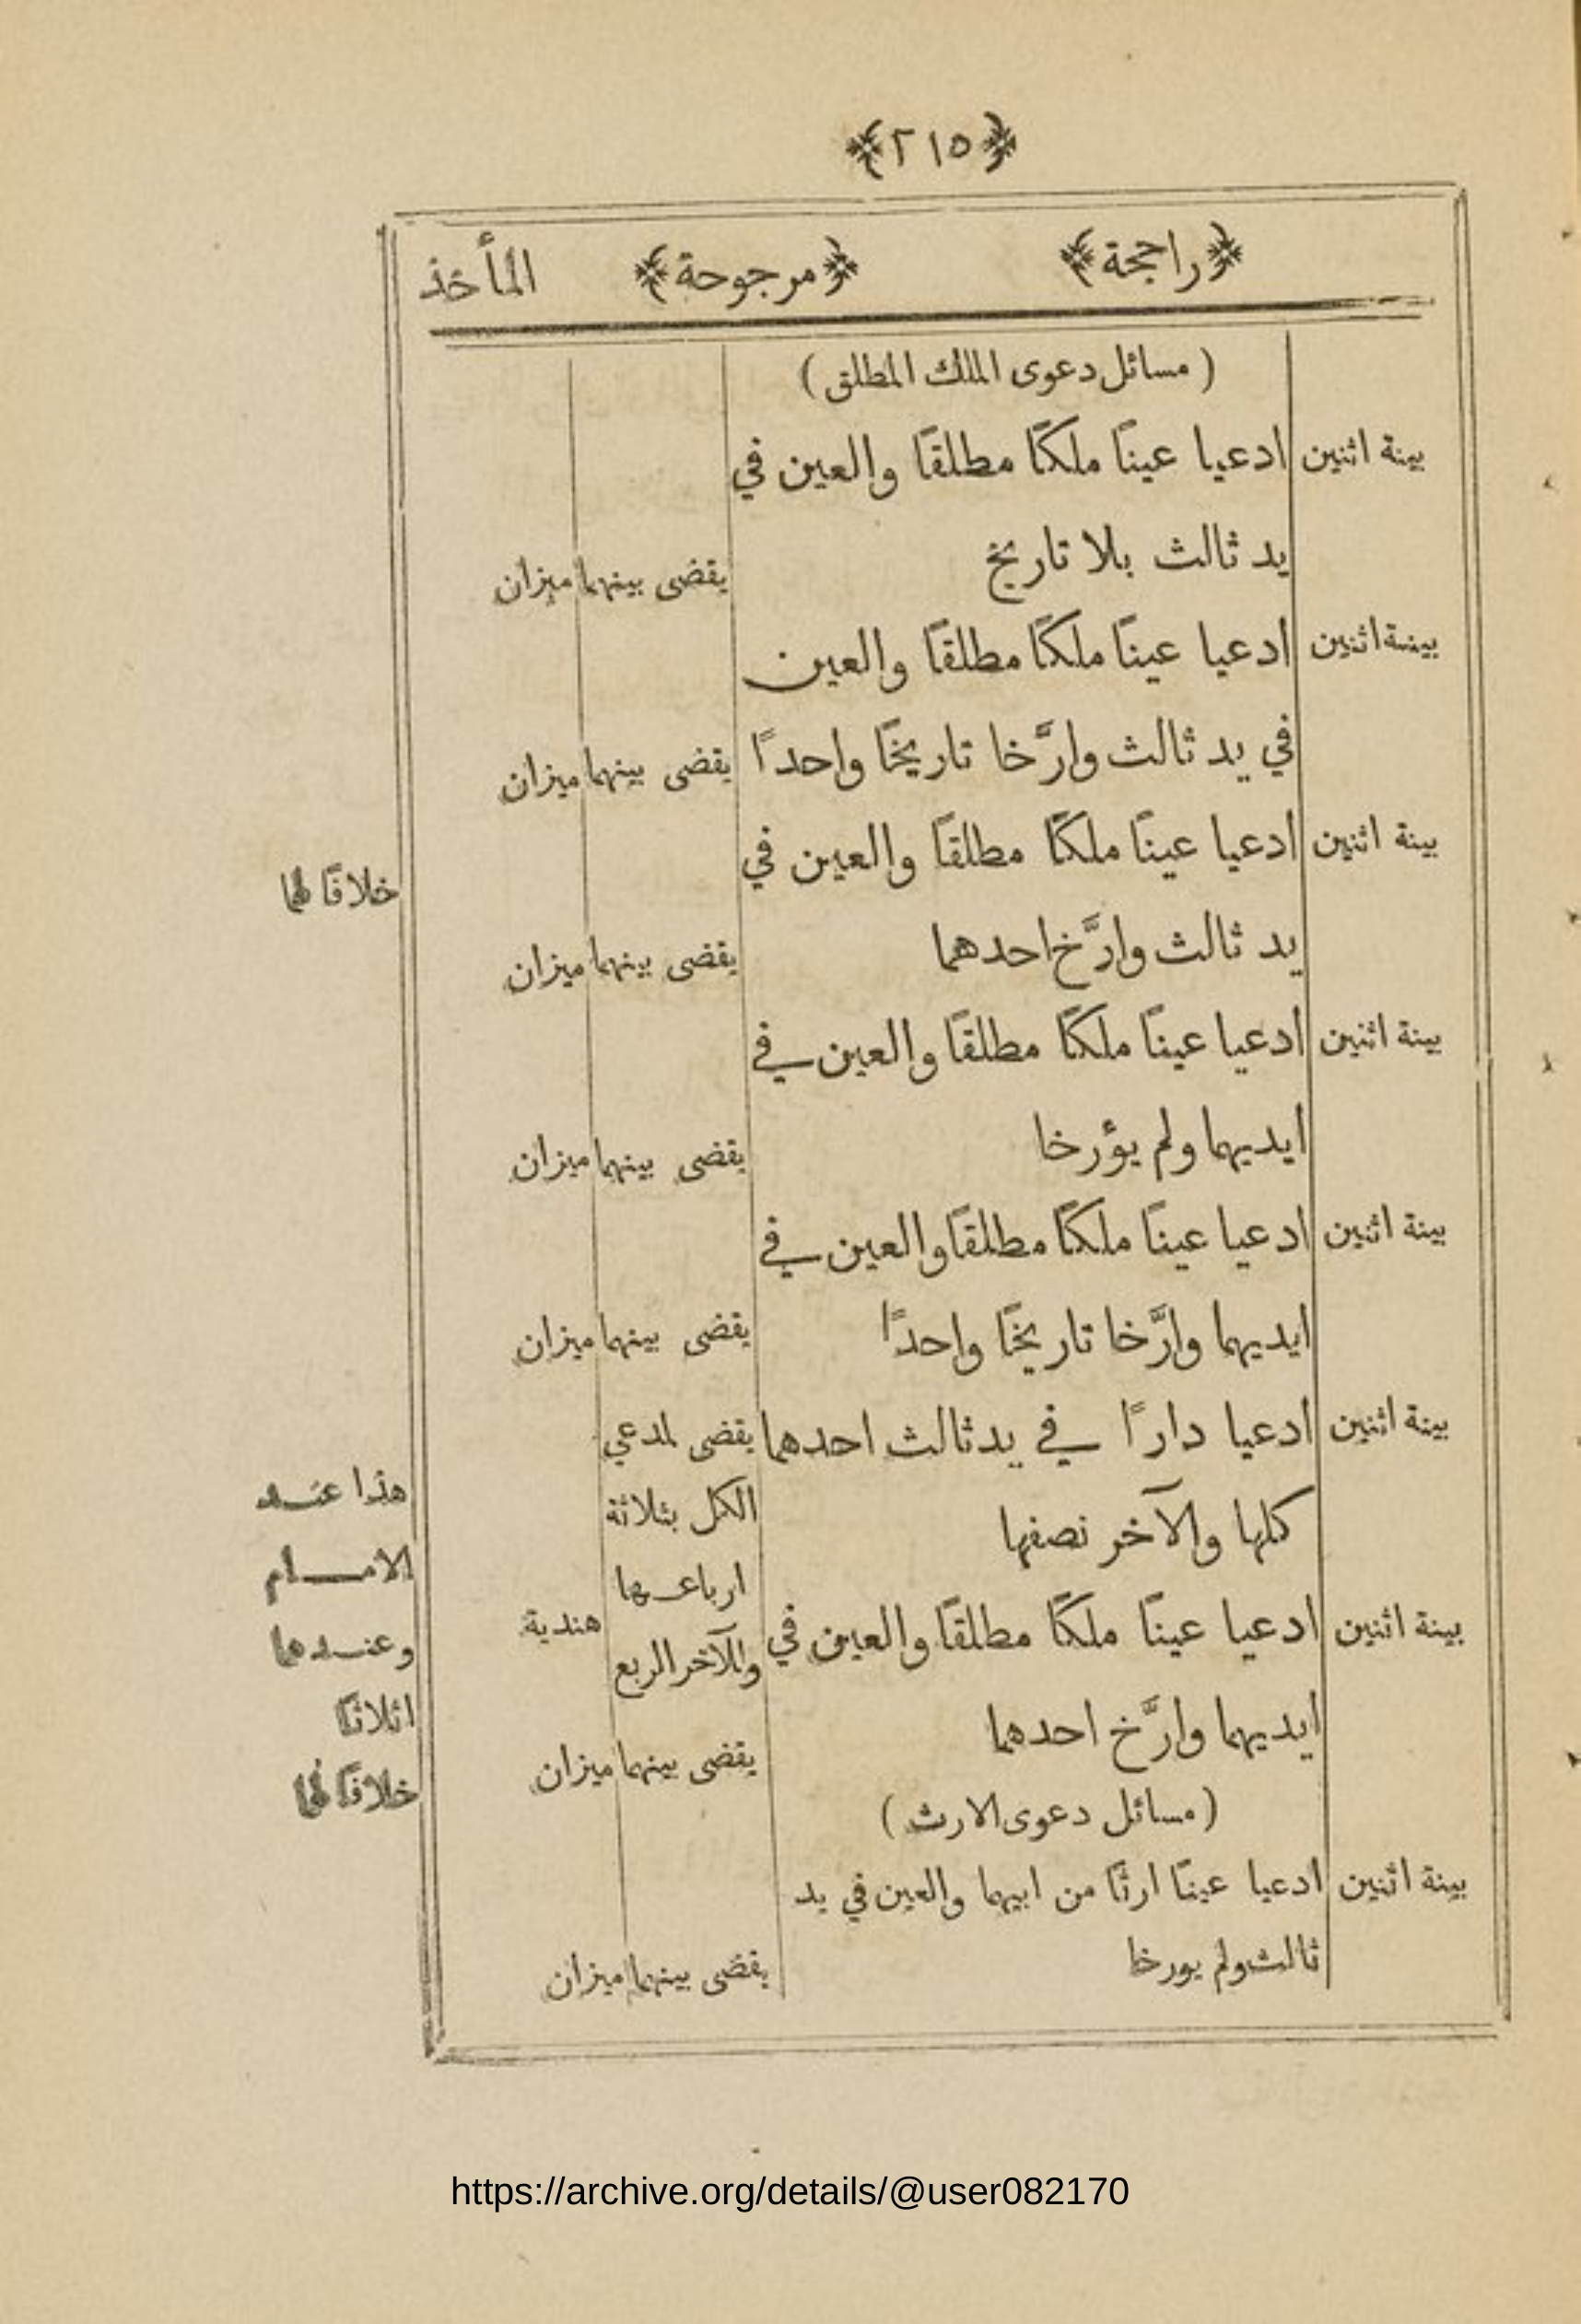 ﴿٢١٥﴾
﴿راجحة﴾ ﴿مرجوحة﴾ المأخذ
( مسائل دعوى الملك المطلق )
بينة اثنين ادعيا عينًا ملكًا مطلقًا والعين في
يد ثالث بلا تاريخ يقضى بينهما ميزان
بينة اثنين ادعيا عينًا ملكًا مطلقًا والعين
في يد ثالث وارَّخا تاريخًا واحدًا يقضى بينهما ميزان
بينة اثنين ادعيا عينًا ملكًا مطلقًا والعين في
خلافًا لهما
يد ثالث وارَّخ احدهما يقضى بينهما ميزان
بينة اثنين ادعيا عينًا ملكًا مطلقًا والعين في
ايديهما ولم يؤرخا يقضى بينهما ميزان
بينة اثنين ادعيا عينًا ملكًا مطلقًا والعين في
ايديهما وارَّخا تاريخًا واحدًا يقضى بينهما ميزان
بينة اثنين ادعيا دارًا في يد ثالث احدهما يقضى لمدعي
كلها والآخر نصفها الكل بثلاثة هذا عند
ارباعها الامام
بينة اثنين ادعيا عينًا ملكًا مطلقًا والعين في وللآخر الربع هندية وعندهما
ايديهما وارَّخ احدهما اثلاثًا
يقضى بينهما ميزان خلافًا لهما
( مسائل دعوى الارث )
بينة اثنين ادعيا عينًا ارثًا من ابيهما والعين في يد
ثالث ولم يورخا يقضى بينهما ميزان
https://archive.org/details/@user082170